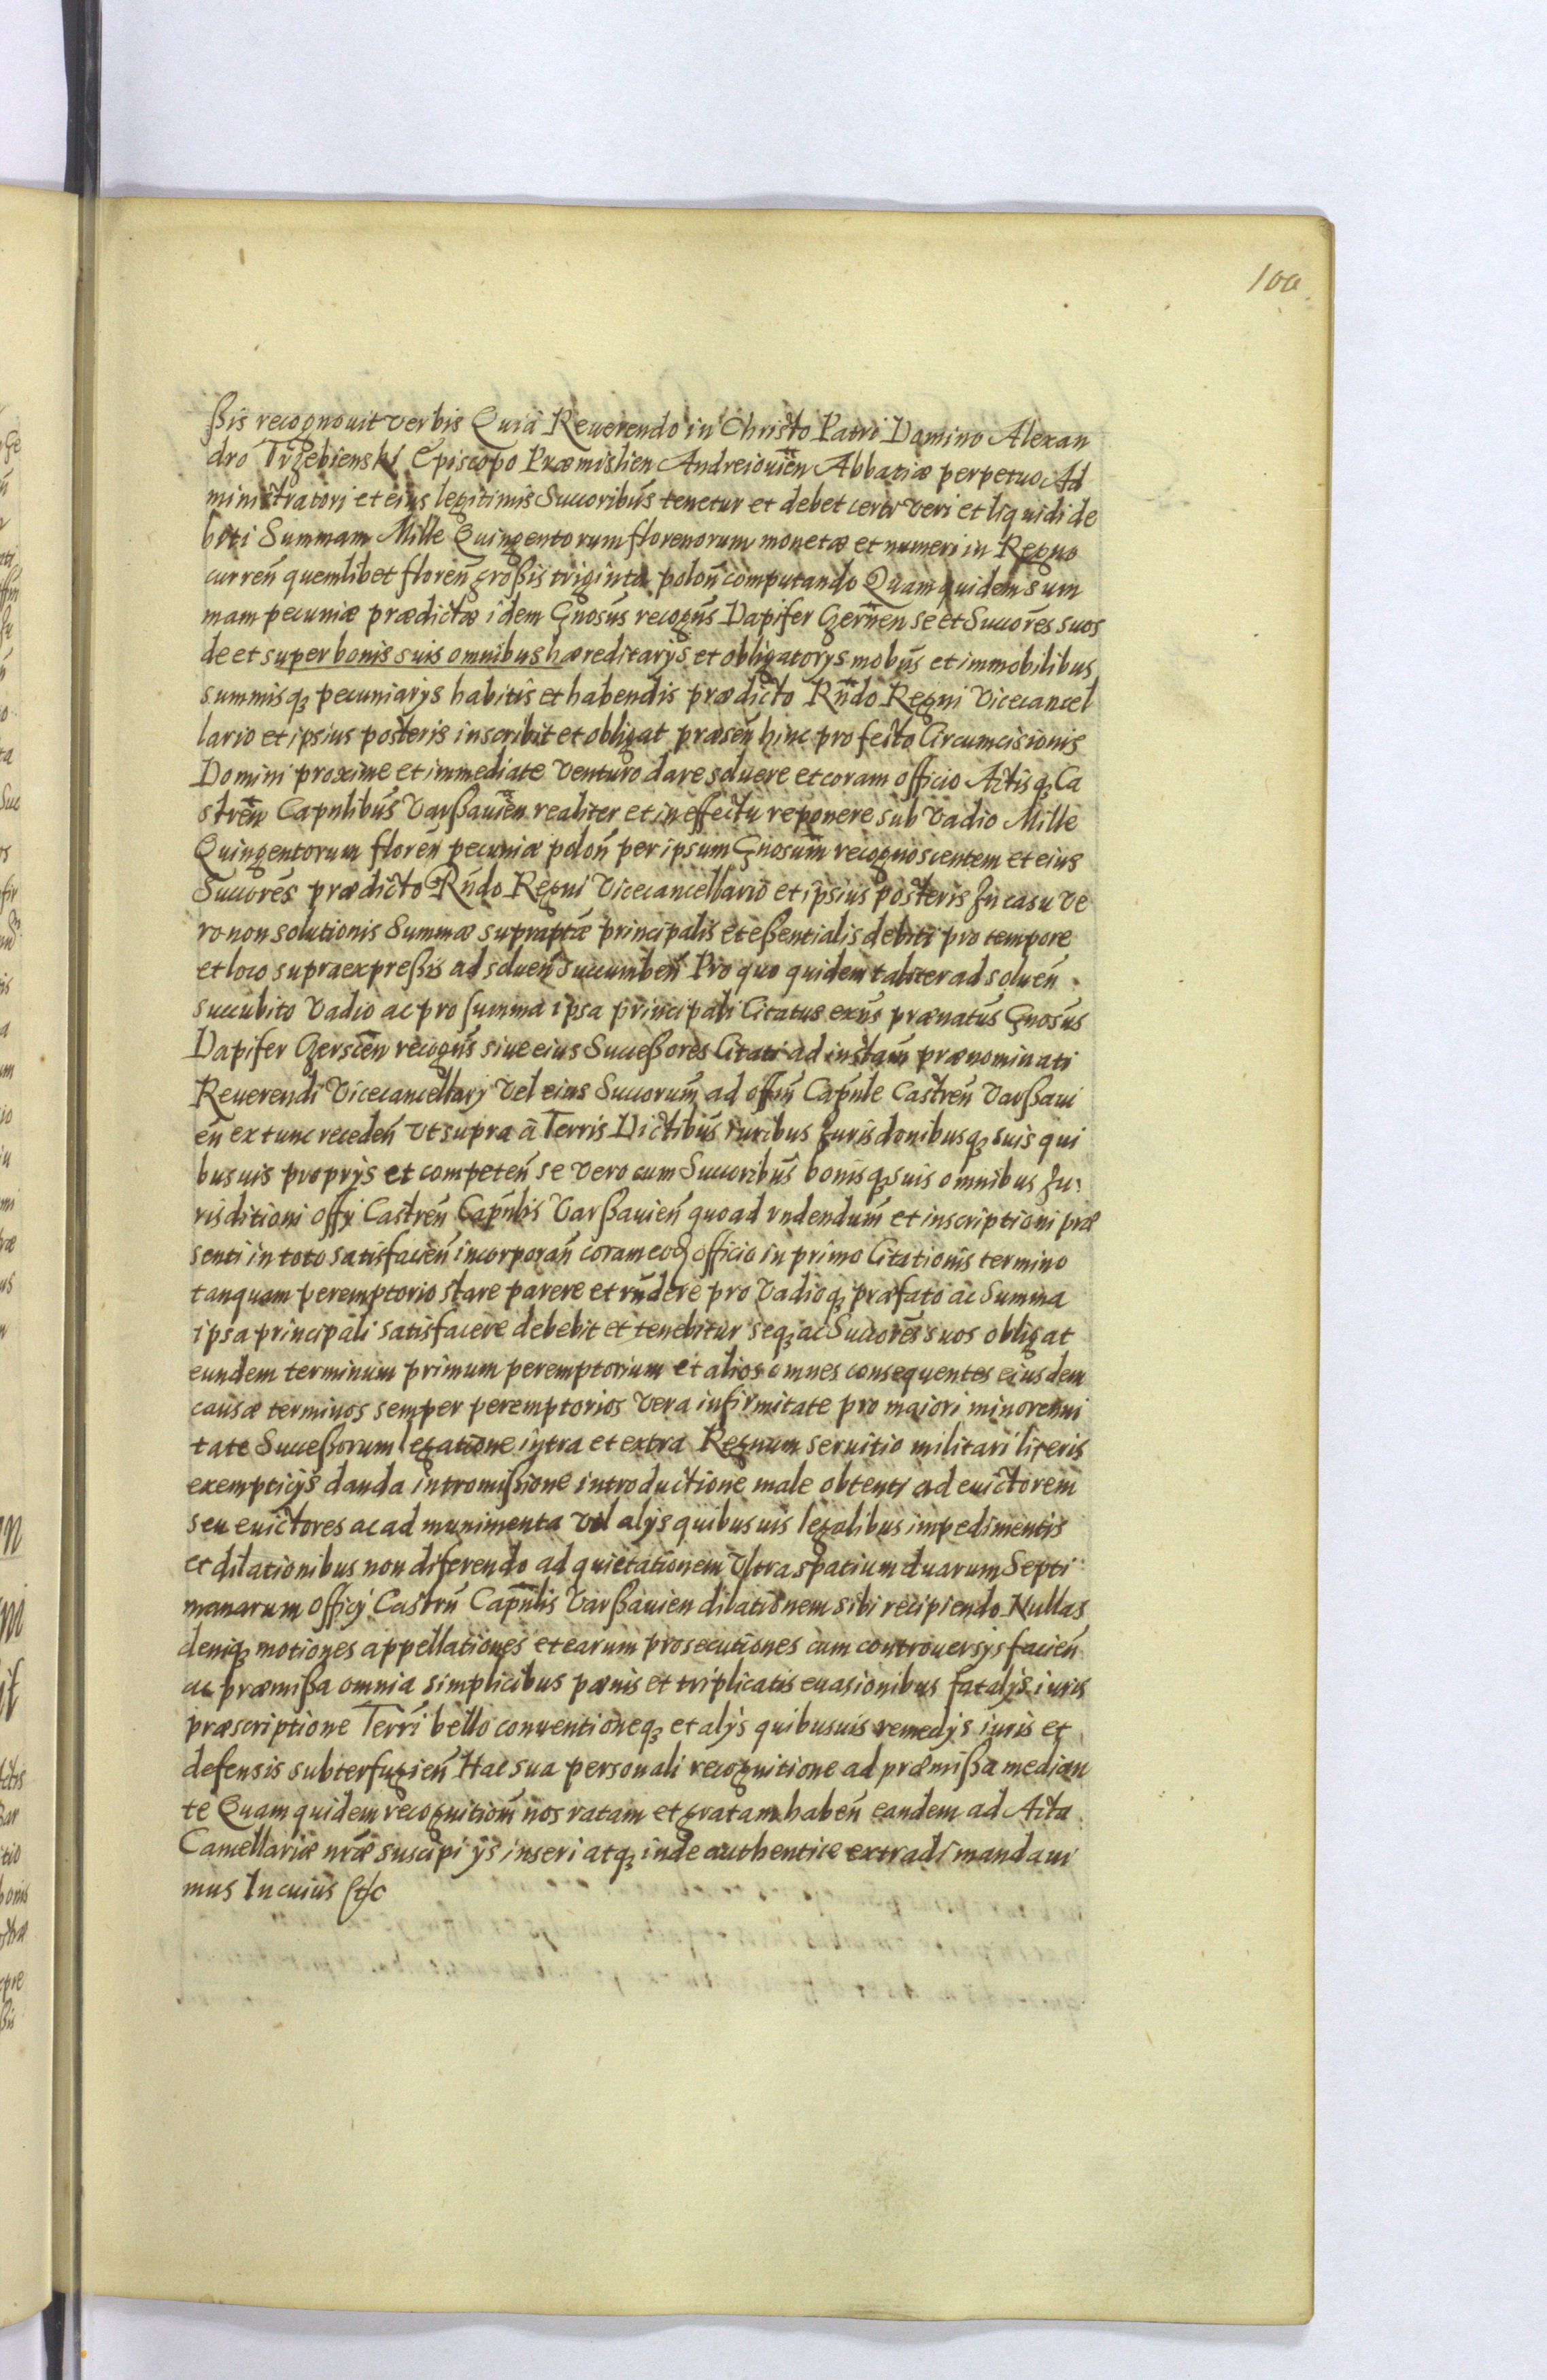 100
ßis recognouit verbis Quia Reuerendo in Christo Patri Domino Alexan
dro Trzebienski Episcopo Præmislien Andreiouien Abbatiæ perpetuo Ad
ministratori et eius legitimis Succoribus tenetur et debet certi veri et liquidi de
biti Summam Mille Quingentorum florenorum monetæ et numeri in Regno
curreñ quemlibet floreñ großis triginta poloñ computando Quam quidem sum
mam pecuniæ prædictæ idem Gnosus recogñs Dapifer Czernen se et Succores suos
de et super bonis suis omnibus hæreditarijs et obligatorijs mobus et immobilibus
summisq3 pecuniarijs habitis et habendis prædicto Rñdo Regni Vicecancel
lario et ipsius posteris inscribit et obligat præseñ hinc pro festo Circumcisionis
Domini proxime et immediate venturo dare soluere et coram officio Actisq3 Ca
streñ Capnlibus Varßauien realiter et in effectu reponere sub vadio Mille
Quingentorum floreñ pecuniæ poloñ per ipsum Gnosum recognoscentem et eius
Succores prædicto Rñdo Regni Vicecancellario et ipsius posteris In casu ve
ro non solutionis Summæ supraptæ principalis et eßentialis debiti pro tempore
et loco supraexpreßis ad solueñ succumbeñ Pro quo quidem taliter ad solueñ
succubito vadio ac pro summa ipsa principali Citatus exñs prænatus Gnosus
Dapifer Czerscen recogñs siue eius Succeßores Citati ad instañ prænominati
Reuerendi Vicecancellarij vel eius Succorum ad offiñ Capnle Castreñ Varßaui
eñ ex tunc recedeñ vt supra à Terris Districtibus Iuribus Iurisdonibusq3 suis qui
busuis proprijs et competeñ se vero cum Succoribus bonisq3 suis omnibus Iu:
risditioni offi Castreñ Capnlis Varßauieñ quoad rñdendum et inscriptioni præ
senti in toto satisfacieñ incorporañ coram eodem officio in primo Citationis termino
tanquam peremptorio stare parere et rñdere pro vadioq3 præfato ac Summa
ipsa principali satisfacere debebit et tenebitur seq3 ac Succores suos obligat
eundem terminum primum peremptorium et alios omnes consequentes eiusdem
causæ terminos semper peremptorios vera infirmitate pro maiori minorenni
tate Succeßorum legatione intra et extra Regnum seruitio militari literis
exempticijs danda intromißione introductione male obtenti ad euictorem
seu euictores ac ad munimenta vel alijs quibusuis legalibus impedimentis
et dilationibus non diferendo ad quietationem vltra spatium duarum Septi
manarum officij Castrñ Capnlis Varßauien dilationem sibi recipiendo Nullas
deniq3 motiones appellationes et earum prosecutiones cum controuersijs facieñ
ac præmißa omnia simplicibus pænis et triplicatis euasionibus fatalijs iuris
præscriptione Terri bello conuentioneq3 et alijs quibusuis remedijs iuris et
defensis subterfugieñ Hac sua personali recognitione ad præmißa median
te Quam quidem recognitioñ nos ratam et gratam habeñ eandem ad Acta
Cancellariæ nræ suscipi ijs inseri atq3 inde authentice extradi mandaui
mus In cuius etc